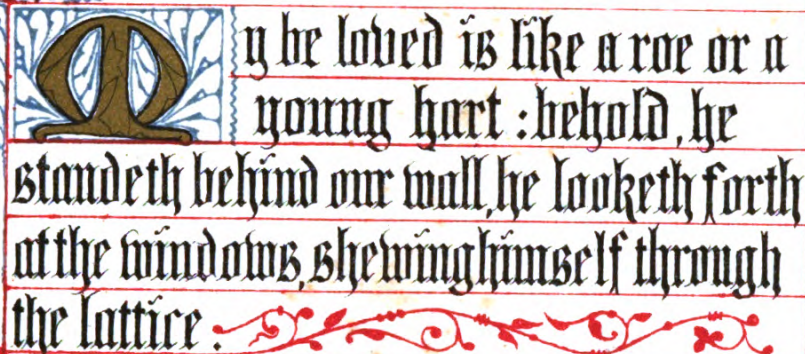 My be loved is like a roe or a
young hart : behold, he
standeth behind our wall, he looketh forth
at the windows, shewing himself through
the lattice.